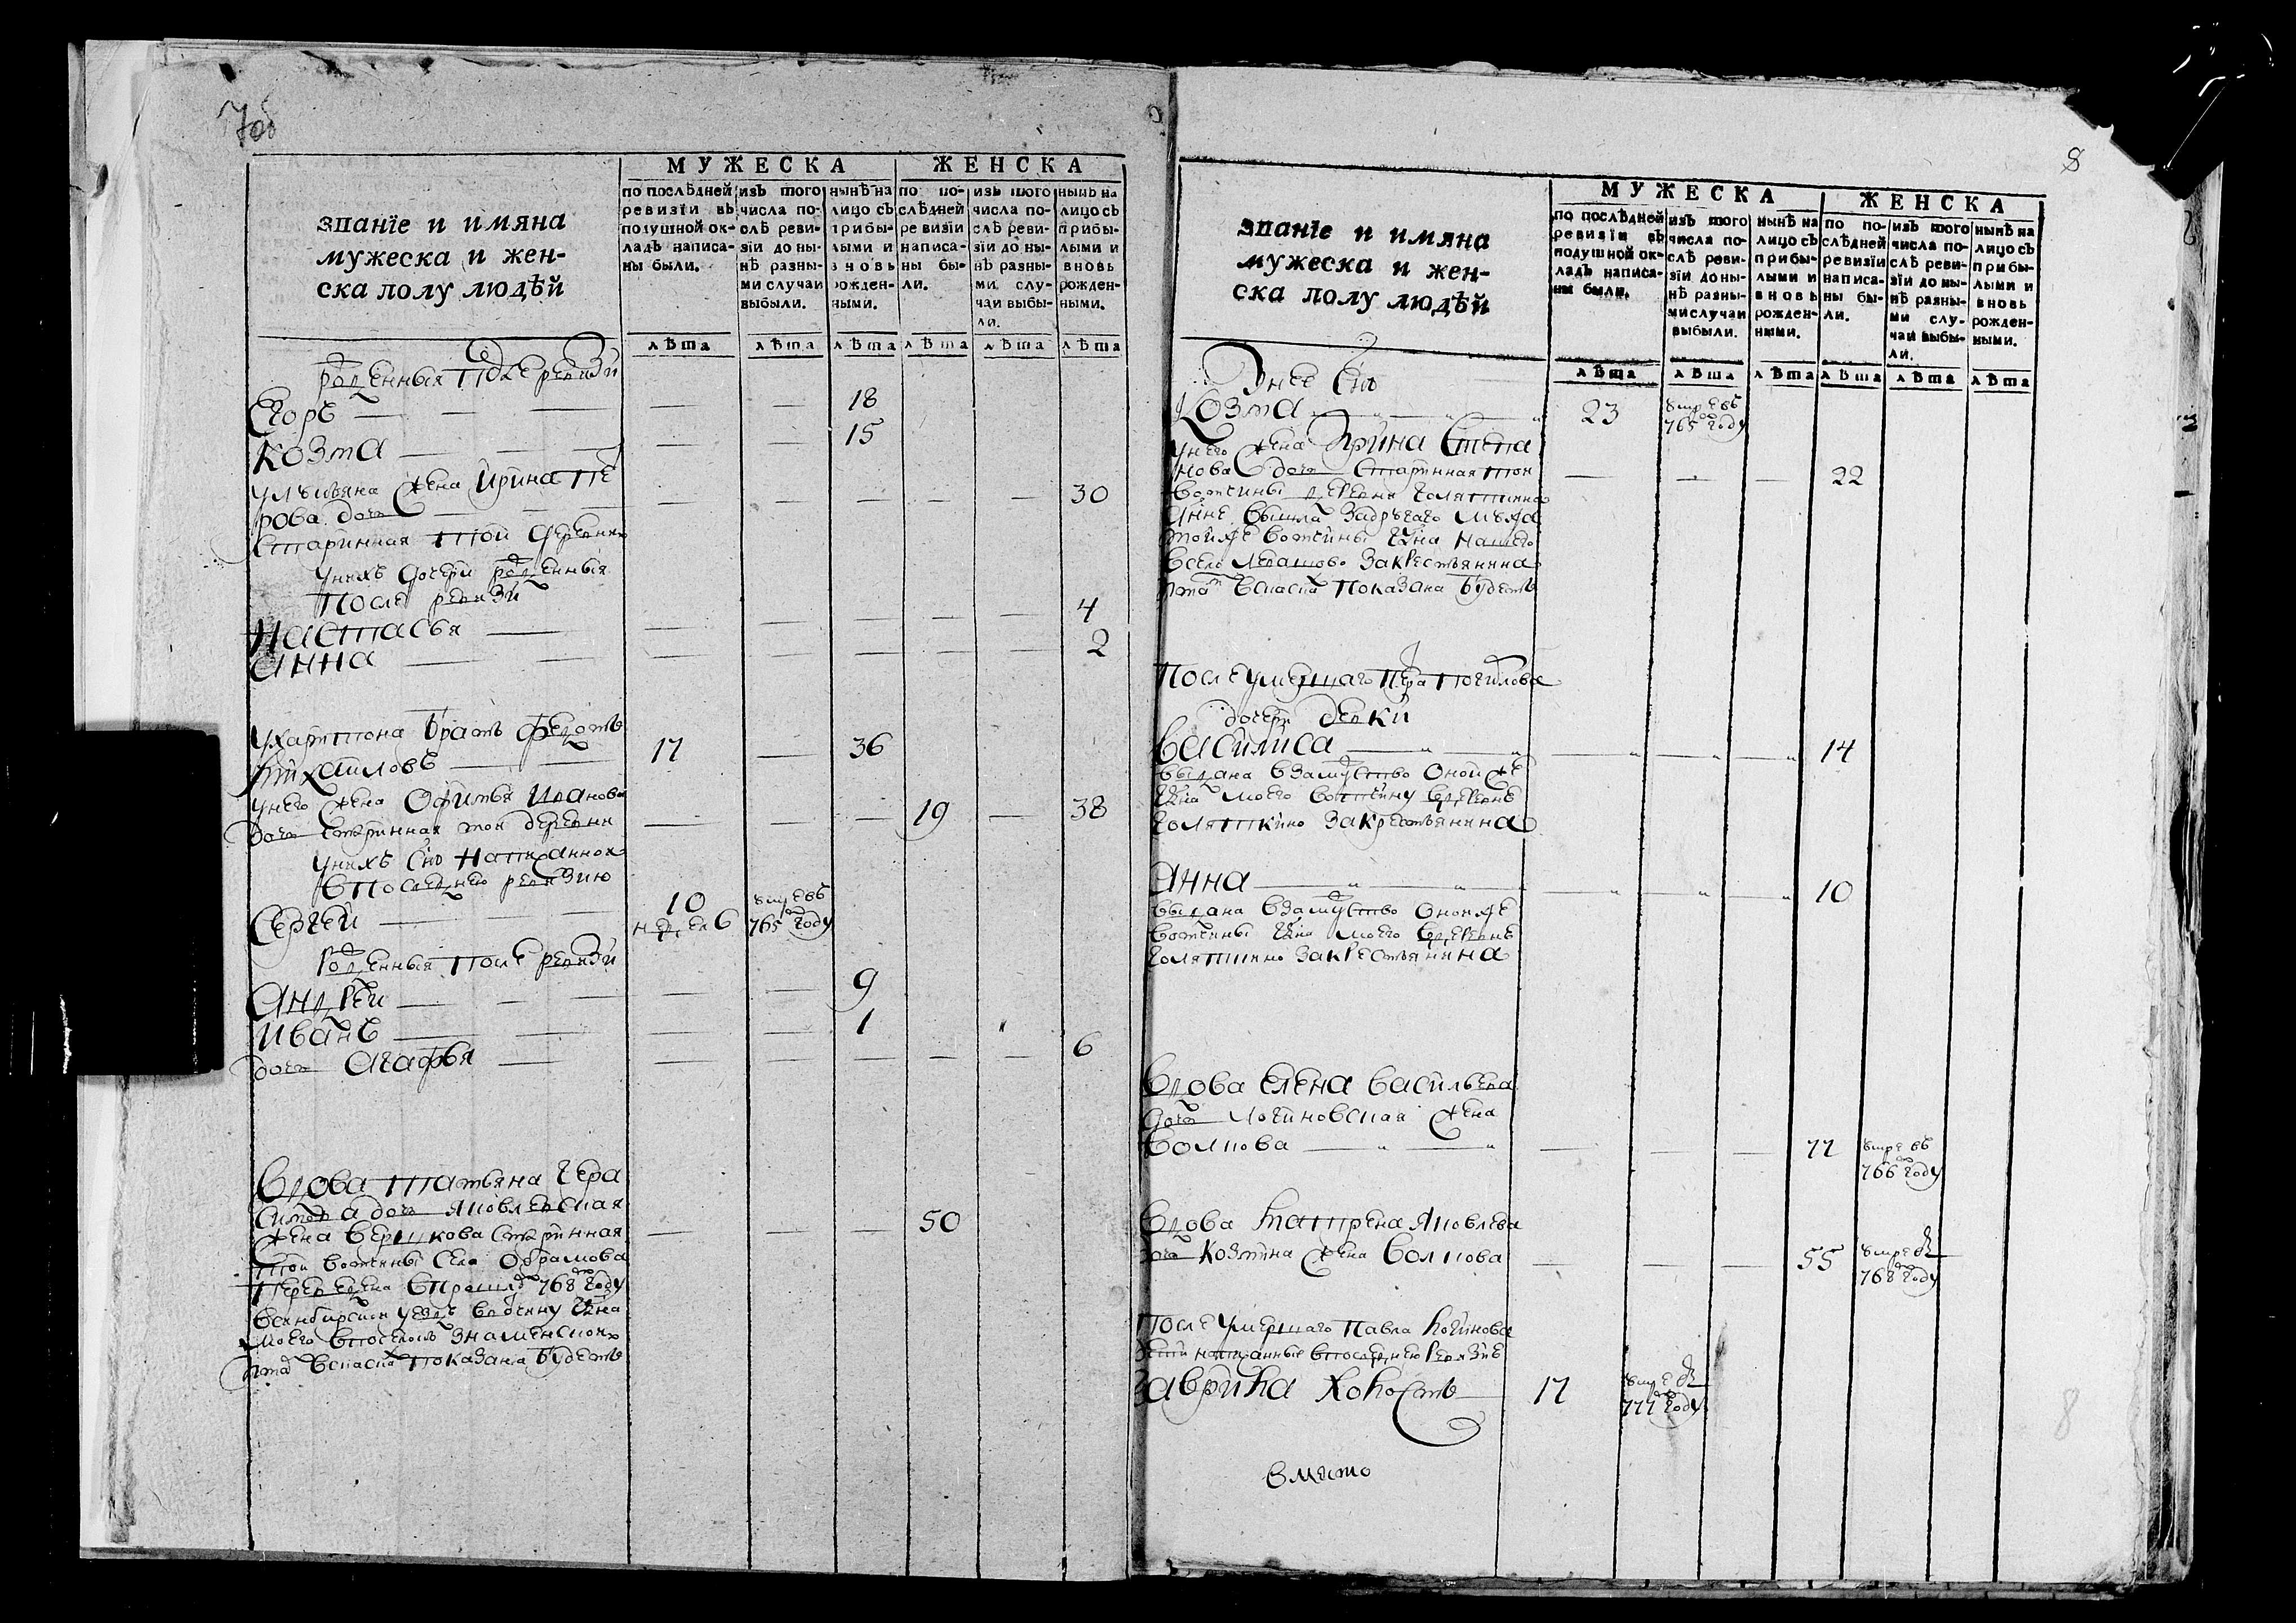 7об
МУЖЕСКА ЖЕНСКА
званїе и имяна
мужеска и жен-
ска полу людѣй
по послѣдней ревизїи въ подушной окладѣ написаны были.
изъ того числа послѣ ревизїи до нынѣ разными случаи выбыли.
нынѣ на лицо съ прибылыми и вновь рожденными.
по послѣдней ревизїи написаны были.
изъ того числа послѣ ревизїи до нынѣ разными случаи выбыли.
нынѣ на лицо съ прибылыми и вновь рожденными.
лѣта лѣта лѣта лѣта лѣта лѣта
рожденныя после ревизїи
Егоръ — — 18
Козма — — 15
Ульяна жена Ирина Пе
рова дочь — — — — — 30
старинная той деревни
у нихъ дочери рожденныя
после ревизїи
Настасья — — — — — 4
Анна — — — — — 2
У Харитона братъ Федотъ
Михаиловъ 17 — 36
у него жена Офимья Иванова
дочь старинная той деревни — — — 19 — 38
у нихъ сынъ написанной
в последнею ревизию
Сергей 10 умре въ
недель 6 765 году
рожденныя после ревизїи
Андрей — — 9
Иванъ — — 1
дочь Агафья — — — — — 6
Вдова Татьяна Гера
симова дочь Яковлевская
жена Вершкова старинная — — — 50
той вотчины села Абрамова
переведена в прошлом 768 году
в Синбирской уездъ в вотчину гдна
моего в поселокъ Знаменской
и тамо в сказке показана будетъ
8
МУЖЕСКА ЖЕНСКА
званїе и имяна
мужеска и жен-
ска полу людѣй
по послѣдней ревизїи въ подушной окладѣ написаны были.
изъ того числа послѣ ревизїи до нынѣ разными случаи выбыли.
нынѣ на лицо съ прибылыми и вновь рожденными.
по послѣдней ревизїи написаны были.
изъ того числа послѣ ревизїи до нынѣ разными случаи выбыли.
нынѣ на лицо съ прибылыми и вновь рожденными.
лѣта лѣта лѣта лѣта лѣта лѣта
У нее сынъ
Козма 23 умре въ
765 году
у него жена Ирина Степа
нова дочь старинная той — — — 22
вотчины деревни
а ныне вышла за другаго мужа
той же вотчины гдна нашего
в село за крестьянина
и тамо в сказке показана будетъ
После умершаго Петра Логинова
дочери девки
Василиса — — — 14
выдана в замужство оной же
гдна моего вотчину в деревне
за крестьянина
Анна — — — 10
выдана в замужство оной же
вотчины гдна моего в деревне
за крестьянина
Вдова Елена Васильева
дочь Логиновская жена
Волкова — — — 77 умре въ
766 году
Вдова Матрена Яковлева
дочь Козмина жена Волкова — — — 55 умре въ
768 году
После умершаго Павла Логинова
дети написанные в последнею ревизїю
Гаврила холостъ 17 умре въ
777 году
вмѣсто
8